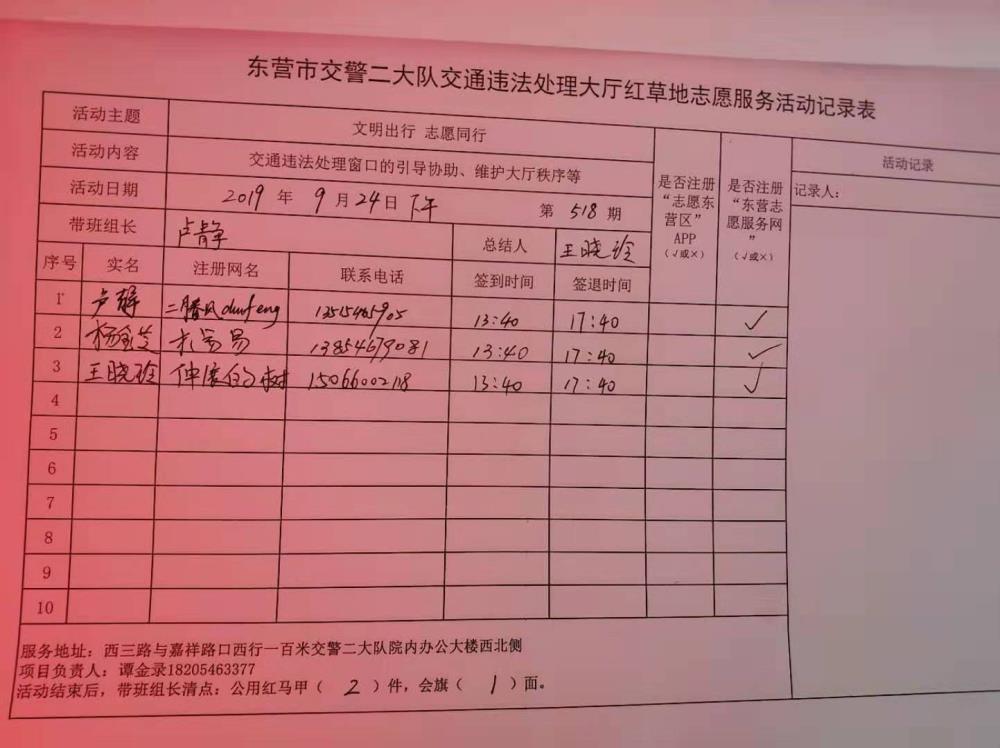 东营市交警二大队交通违法处理大厅红草地志愿服务活动记录表
活动主题 文明出行 志愿同行
活动内容 交通违法处理窗口的引导协助、维护大厅秩序等
活动日期 2019 年 9 月 24 日 下午 第 518 期
带班组长 卢静 总结人 王晓玲
是否注册
“志愿东
营区”
APP
(√或×)
是否注册
“东营志
愿服务网
”
(√或×)
活动记录
记录人：
序号 实名 注册网名 联系电话 签到时间 签退时间
1 卢静 13515465905 13:40 17:40 ✓
2 13854679081 13:40 17:40 ✓
3 王晓玲 伸展的树 15066002118 13:40 17:40 ✓
4
5
6
7
8
9
10
服务地址：西三路与嘉祥路口西行一百米交警二大队院内办公大楼西北侧
项目负责人：谭金录18205463377
活动结束后，带班组长清点：公用红马甲（ 2 ）件，会旗（ 1 ）面。